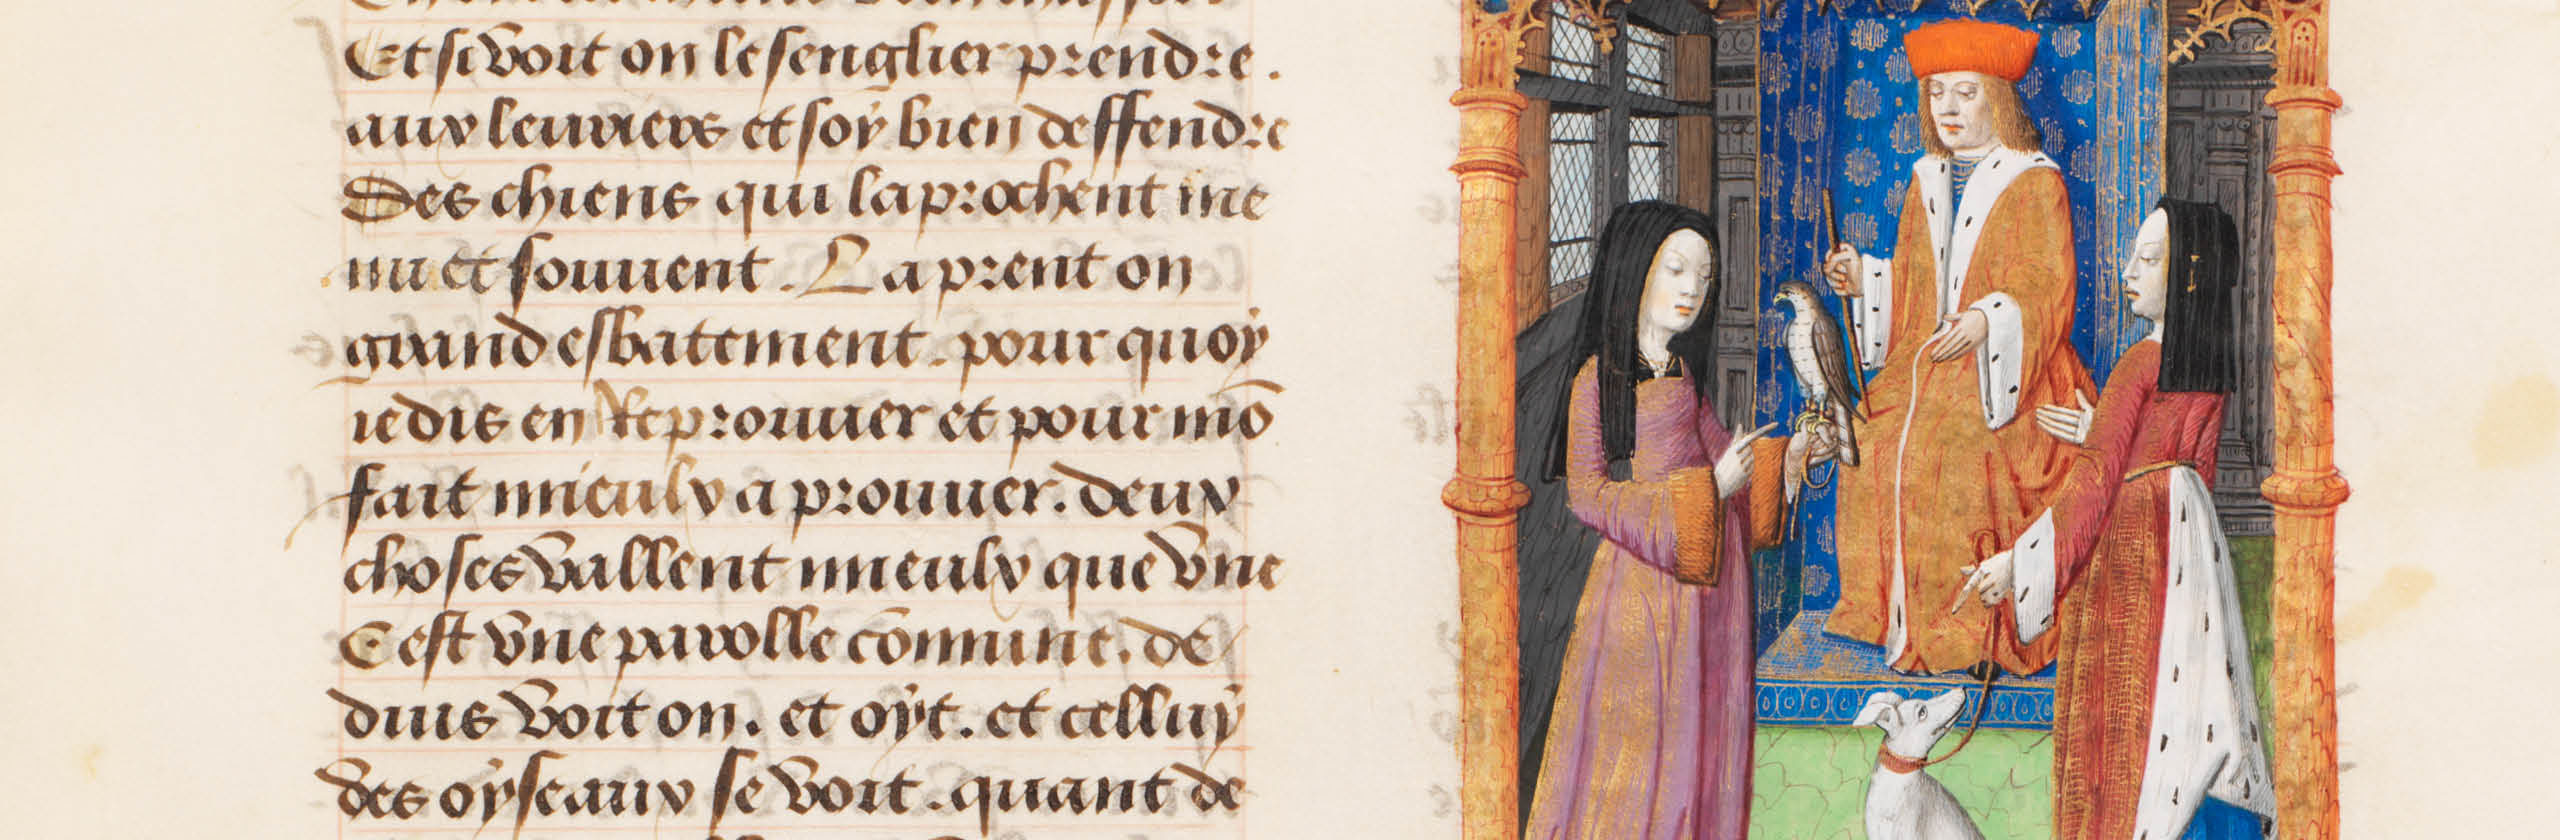 Et si voit on le senglier prendre.
aux leuriers et soy bien deffendre
Des chiens qui laprochent me
nu et souuent. La prent on
grand esbatement. pour quoy
ie dis en Reprouuer et pour mō
fait mieulx a prouuer. deux
choses vallent mieulx que vne
C est vne parolle cōmune. de
duis voit on. et oyt. et celluy
des oyseaux se voit. quant de